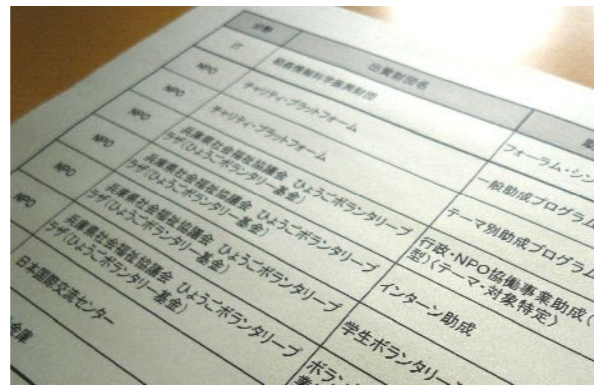 分野 出資財団名
IT 栢森情報科学振興財団 フォーラム・シン
NPO チャリティ・プラットフォーム 一般助成プログラム
NPO チャリティ・プラットフォーム テーマ別助成プログラム
NPO 兵庫県社会福祉協議会 ひょうごボランタリープ
ラザ(ひょうごボランタリー基金) 行政・NPO協働事業助成(
型)〈テーマ・対象特定〉
NPO 兵庫県社会福祉協議会 ひょうごボランタリープ
ラザ(ひょうごボランタリー基金) インターン助成
NPO 兵庫県社会福祉協議会 ひょうごボランタリープ
ラザ(ひょうごボランタリー基金) 学生ボランタリー
NPO 兵庫県社会福祉協議会 ひょうごボランタリープ
ラザ(ひょうごボランタリー基金) ボラン
日本国際交流センター